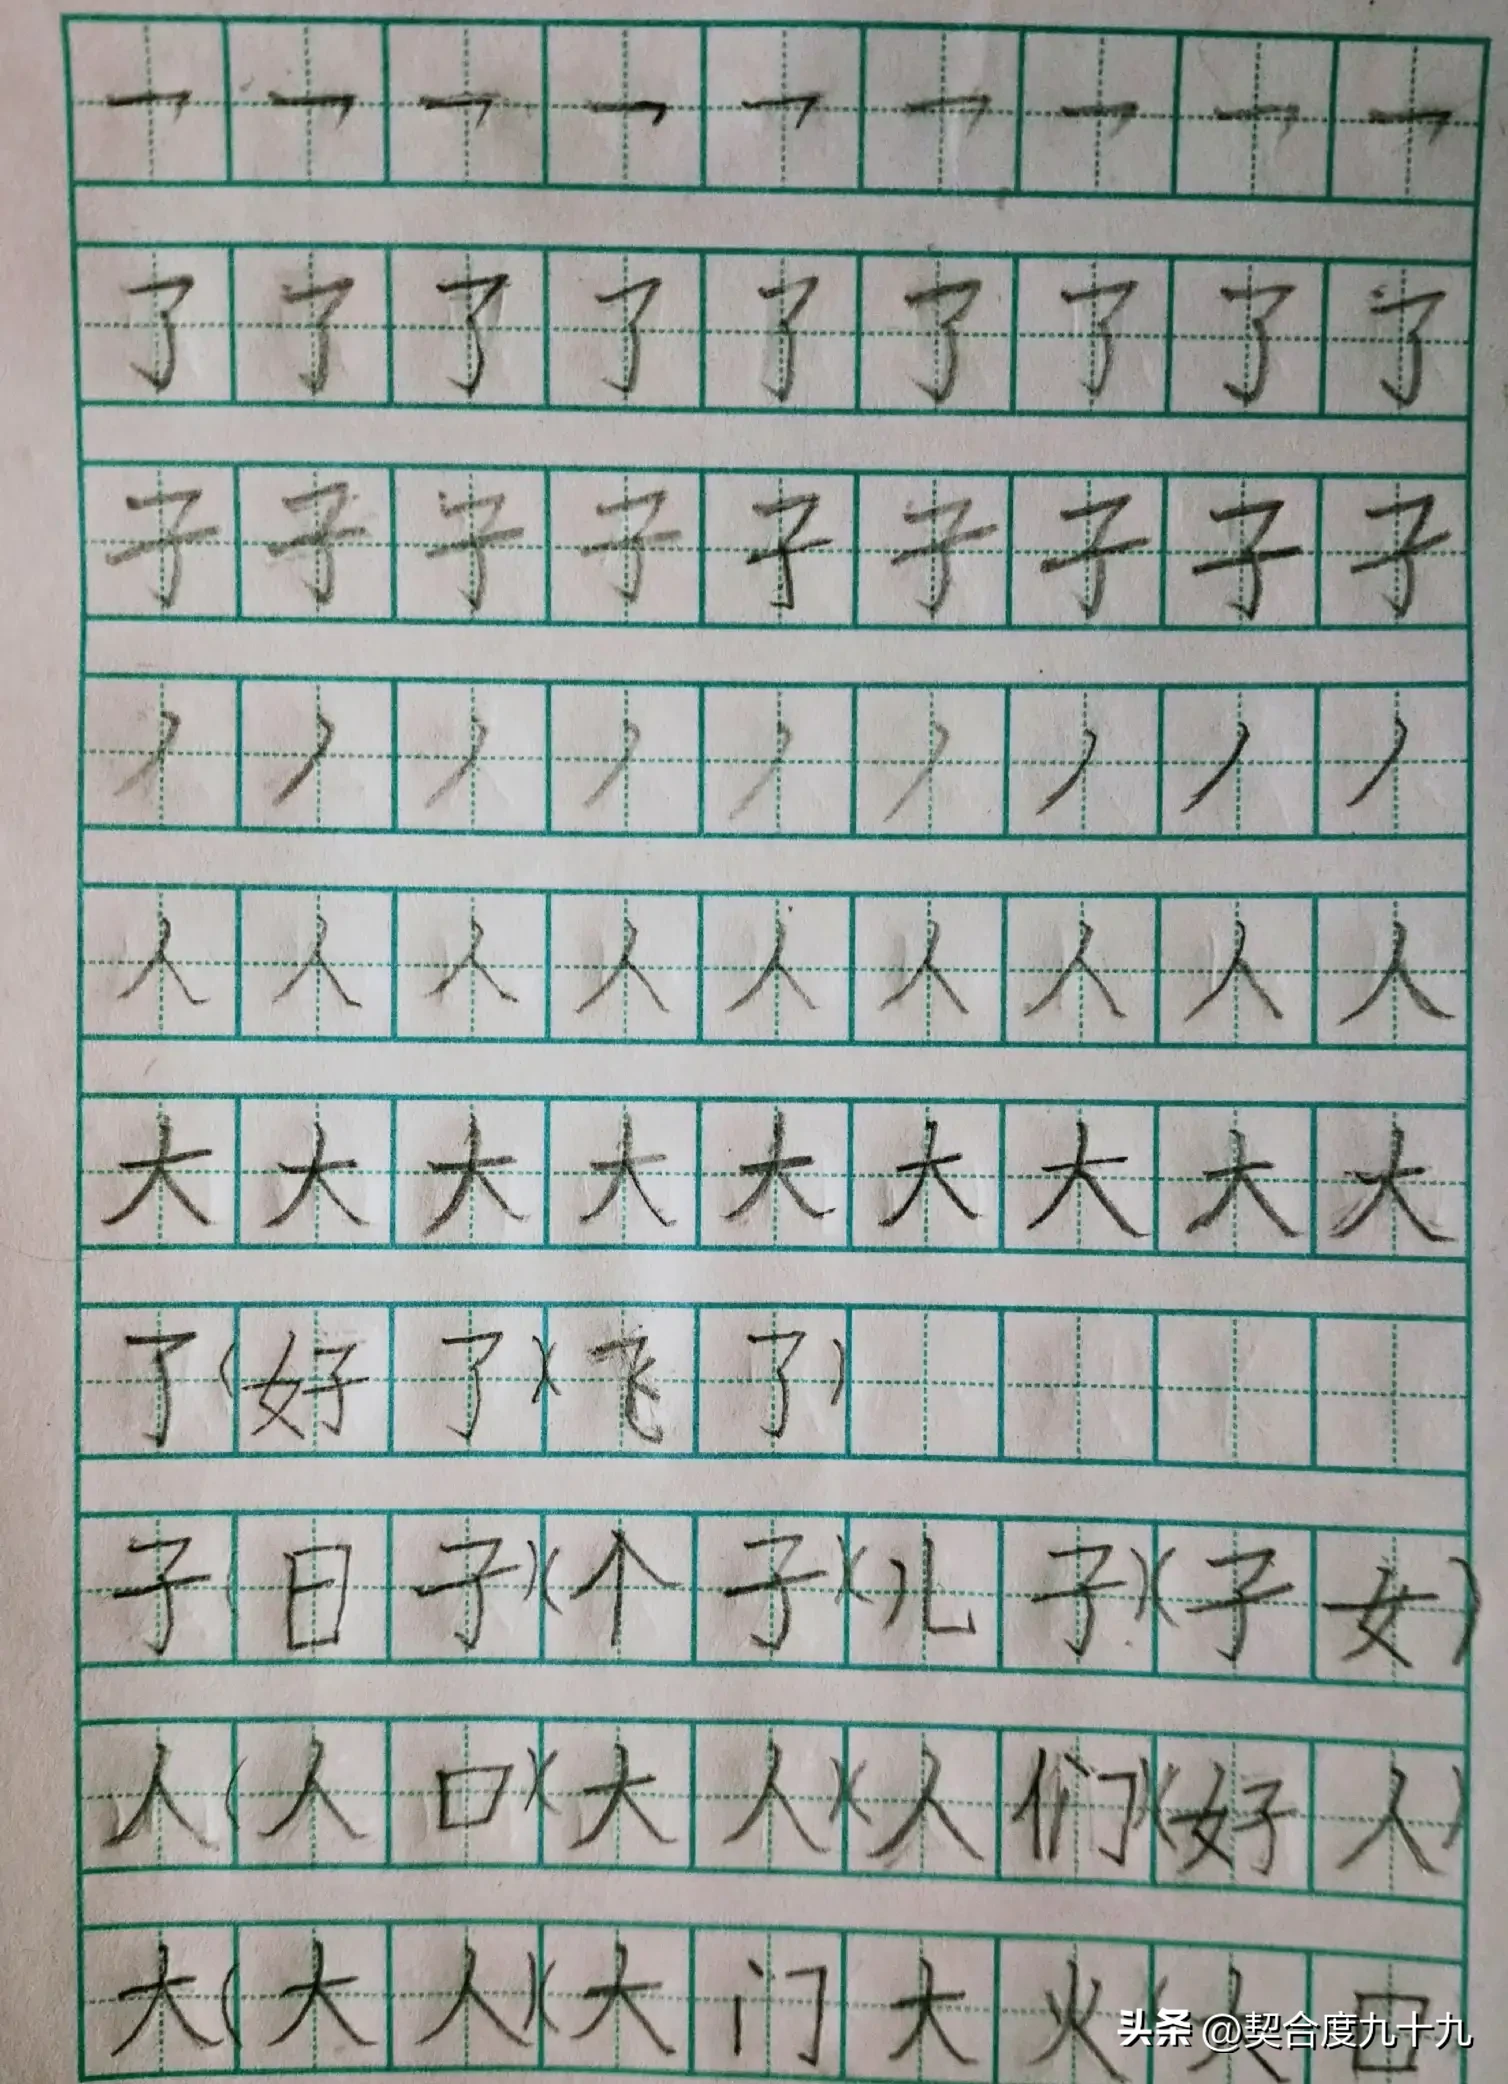 乛乛乛乛乛乛乛乛乛
了了了了了了了了了
子子子子子子子子子
丿丿丿丿丿丿丿丿丿
人人人人人人人人人
大大大大大大大大大
了(好了)(飞了)
子(日子)(个子)(儿子)(子女)
人(人口)(大人)(人们)(好人)
大(大人)(大门大火(大口
头条 @契合度九十九